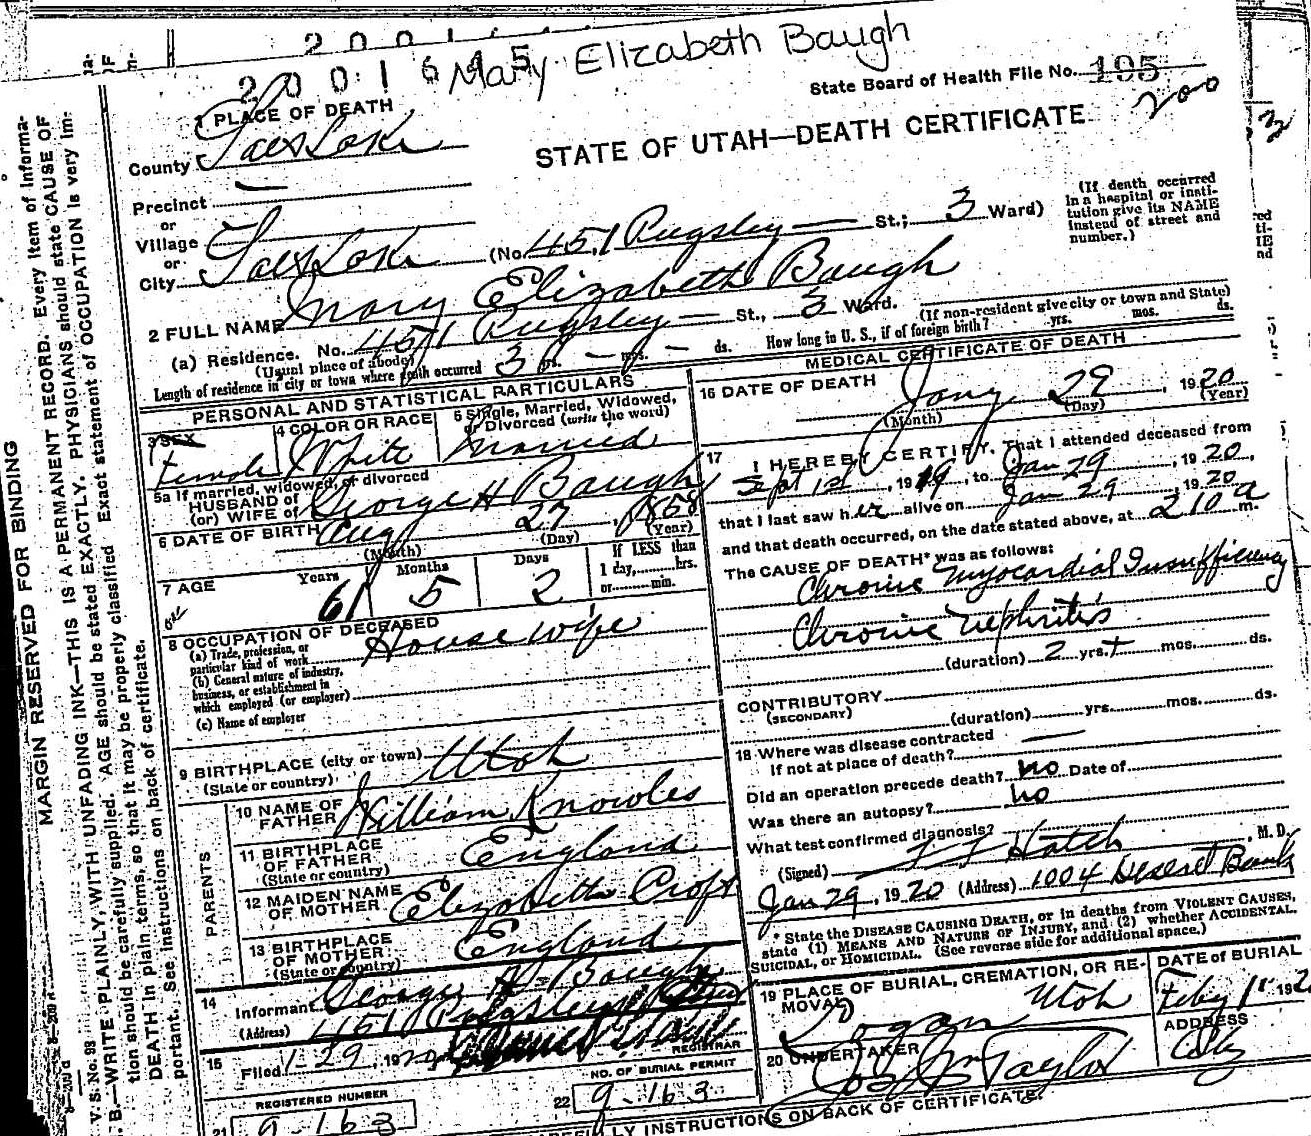 2001645 Mary Elizabeth Baugh
State Board of Health File No. 195
200
1 PLACE OF DEATH
STATE OF UTAH—DEATH CERTIFICATE
County Salt Lake
Precinct —
or
Village
or
City Salt Lake (No. 451 Pugsley — St.; 3 Ward)
(If death occurred in a hospital or insti-
tution give its NAME instead of street and
number.)
2 FULL NAME Mary Elizabeth Baugh
(a) Residence. No. 451 Pugsley — St., 3 Ward.
(Usual place of abode)
(If non-resident give city or town and State)
Length of residence in city or town where death occurred 3 yrs. — mos. — ds. How long in U. S., if of foreign birth? yrs. mos. ds.
PERSONAL AND STATISTICAL PARTICULARS
3 SEX Female
4 COLOR OR RACE White
5 Single, Married, Widowed, or Divorced (write the word) Married
5a If married, widowed, or divorced
HUSBAND of
(or) WIFE of George H Baugh
6 DATE OF BIRTH Aug 27, 1858
(Month) (Day) (Year)
7 AGE Years 61 Months 5 Days 2 If LESS than 1 day, hrs. or min.
8 OCCUPATION OF DECEASED
(a) Trade, profession, or particular kind of work House wife
(b) General nature of industry, business, or establishment in which employed (or employer)
(c) Name of employer
9 BIRTHPLACE (city or town) Utah
(State or country)
PARENTS
10 NAME OF FATHER William Knowles
11 BIRTHPLACE OF FATHER England
(State or country)
12 MAIDEN NAME OF MOTHER Elizabeth Croft
13 BIRTHPLACE OF MOTHER England
(State or country)
14 Informant George H Baugh
(Address) 451 Pugsley
15 Filed 1-29, 1920
REGISTRAR
REGISTERED NUMBER
21 9-163
NO. OF BURIAL PERMIT
22 9-163
MEDICAL CERTIFICATE OF DEATH
16 DATE OF DEATH Jany 29, 1920
(Month) (Day) (Year)
17 I HEREBY CERTIFY, That I attended deceased from
Sept 1st, 1919, to Jan 29, 1920,
that I last saw her alive on Jan 29, 1920
and that death occurred, on the date stated above, at 210 a m.
The CAUSE OF DEATH* was as follows:
Chronic Myocardial Insufficiency
Chronic Nephritis
(duration) 2 yrs. + mos. ds.
CONTRIBUTORY
(SECONDARY)
(duration) yrs. mos. ds.
18 Where was disease contracted
If not at place of death? —
Did an operation precede death? no Date of
Was there an autopsy? no
What test confirmed diagnosis?
(Signed) Hatch, M. D.
Jan 29, 1920 (Address) 1004 Deseret Bank
* State the DISEASE CAUSING DEATH, or in deaths from VIOLENT CAUSES,
state (1) MEANS AND NATURE OF INJURY, and (2) whether ACCIDENTAL,
SUICIDAL, or HOMICIDAL. (See reverse side for additional space.)
19 PLACE OF BURIAL, CREMATION, OR RE-
MOVAL Logan Utah
DATE of BURIAL
Feby 1st 192
20 UNDERTAKER Jos Wm Taylor
ADDRESS
City
INSTRUCTIONS ON BACK OF CERTIFICATE.
MARGIN RESERVED FOR BINDING
V. S. No. 98
B.—WRITE PLAINLY, WITH UNFADING INK—THIS IS A PERMANENT RECORD. Every item of informa-
tion should be carefully supplied. AGE should be stated EXACTLY. PHYSICIANS should state CAUSE OF
DEATH in plain terms, so that it may be properly classified. Exact statement of OCCUPATION is very im-
portant. See instructions on back of certificate.